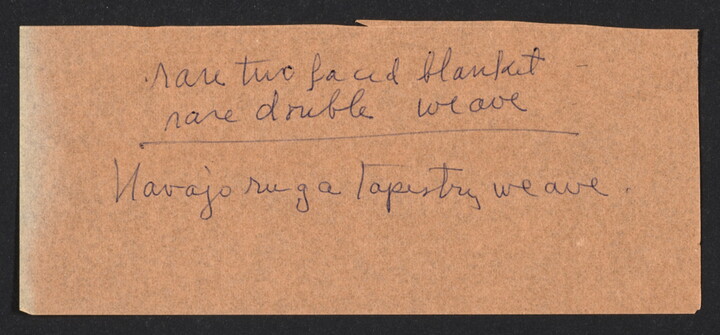 rare two faced blanket -
rare double weave
Navajo rug a Tapestry weave.